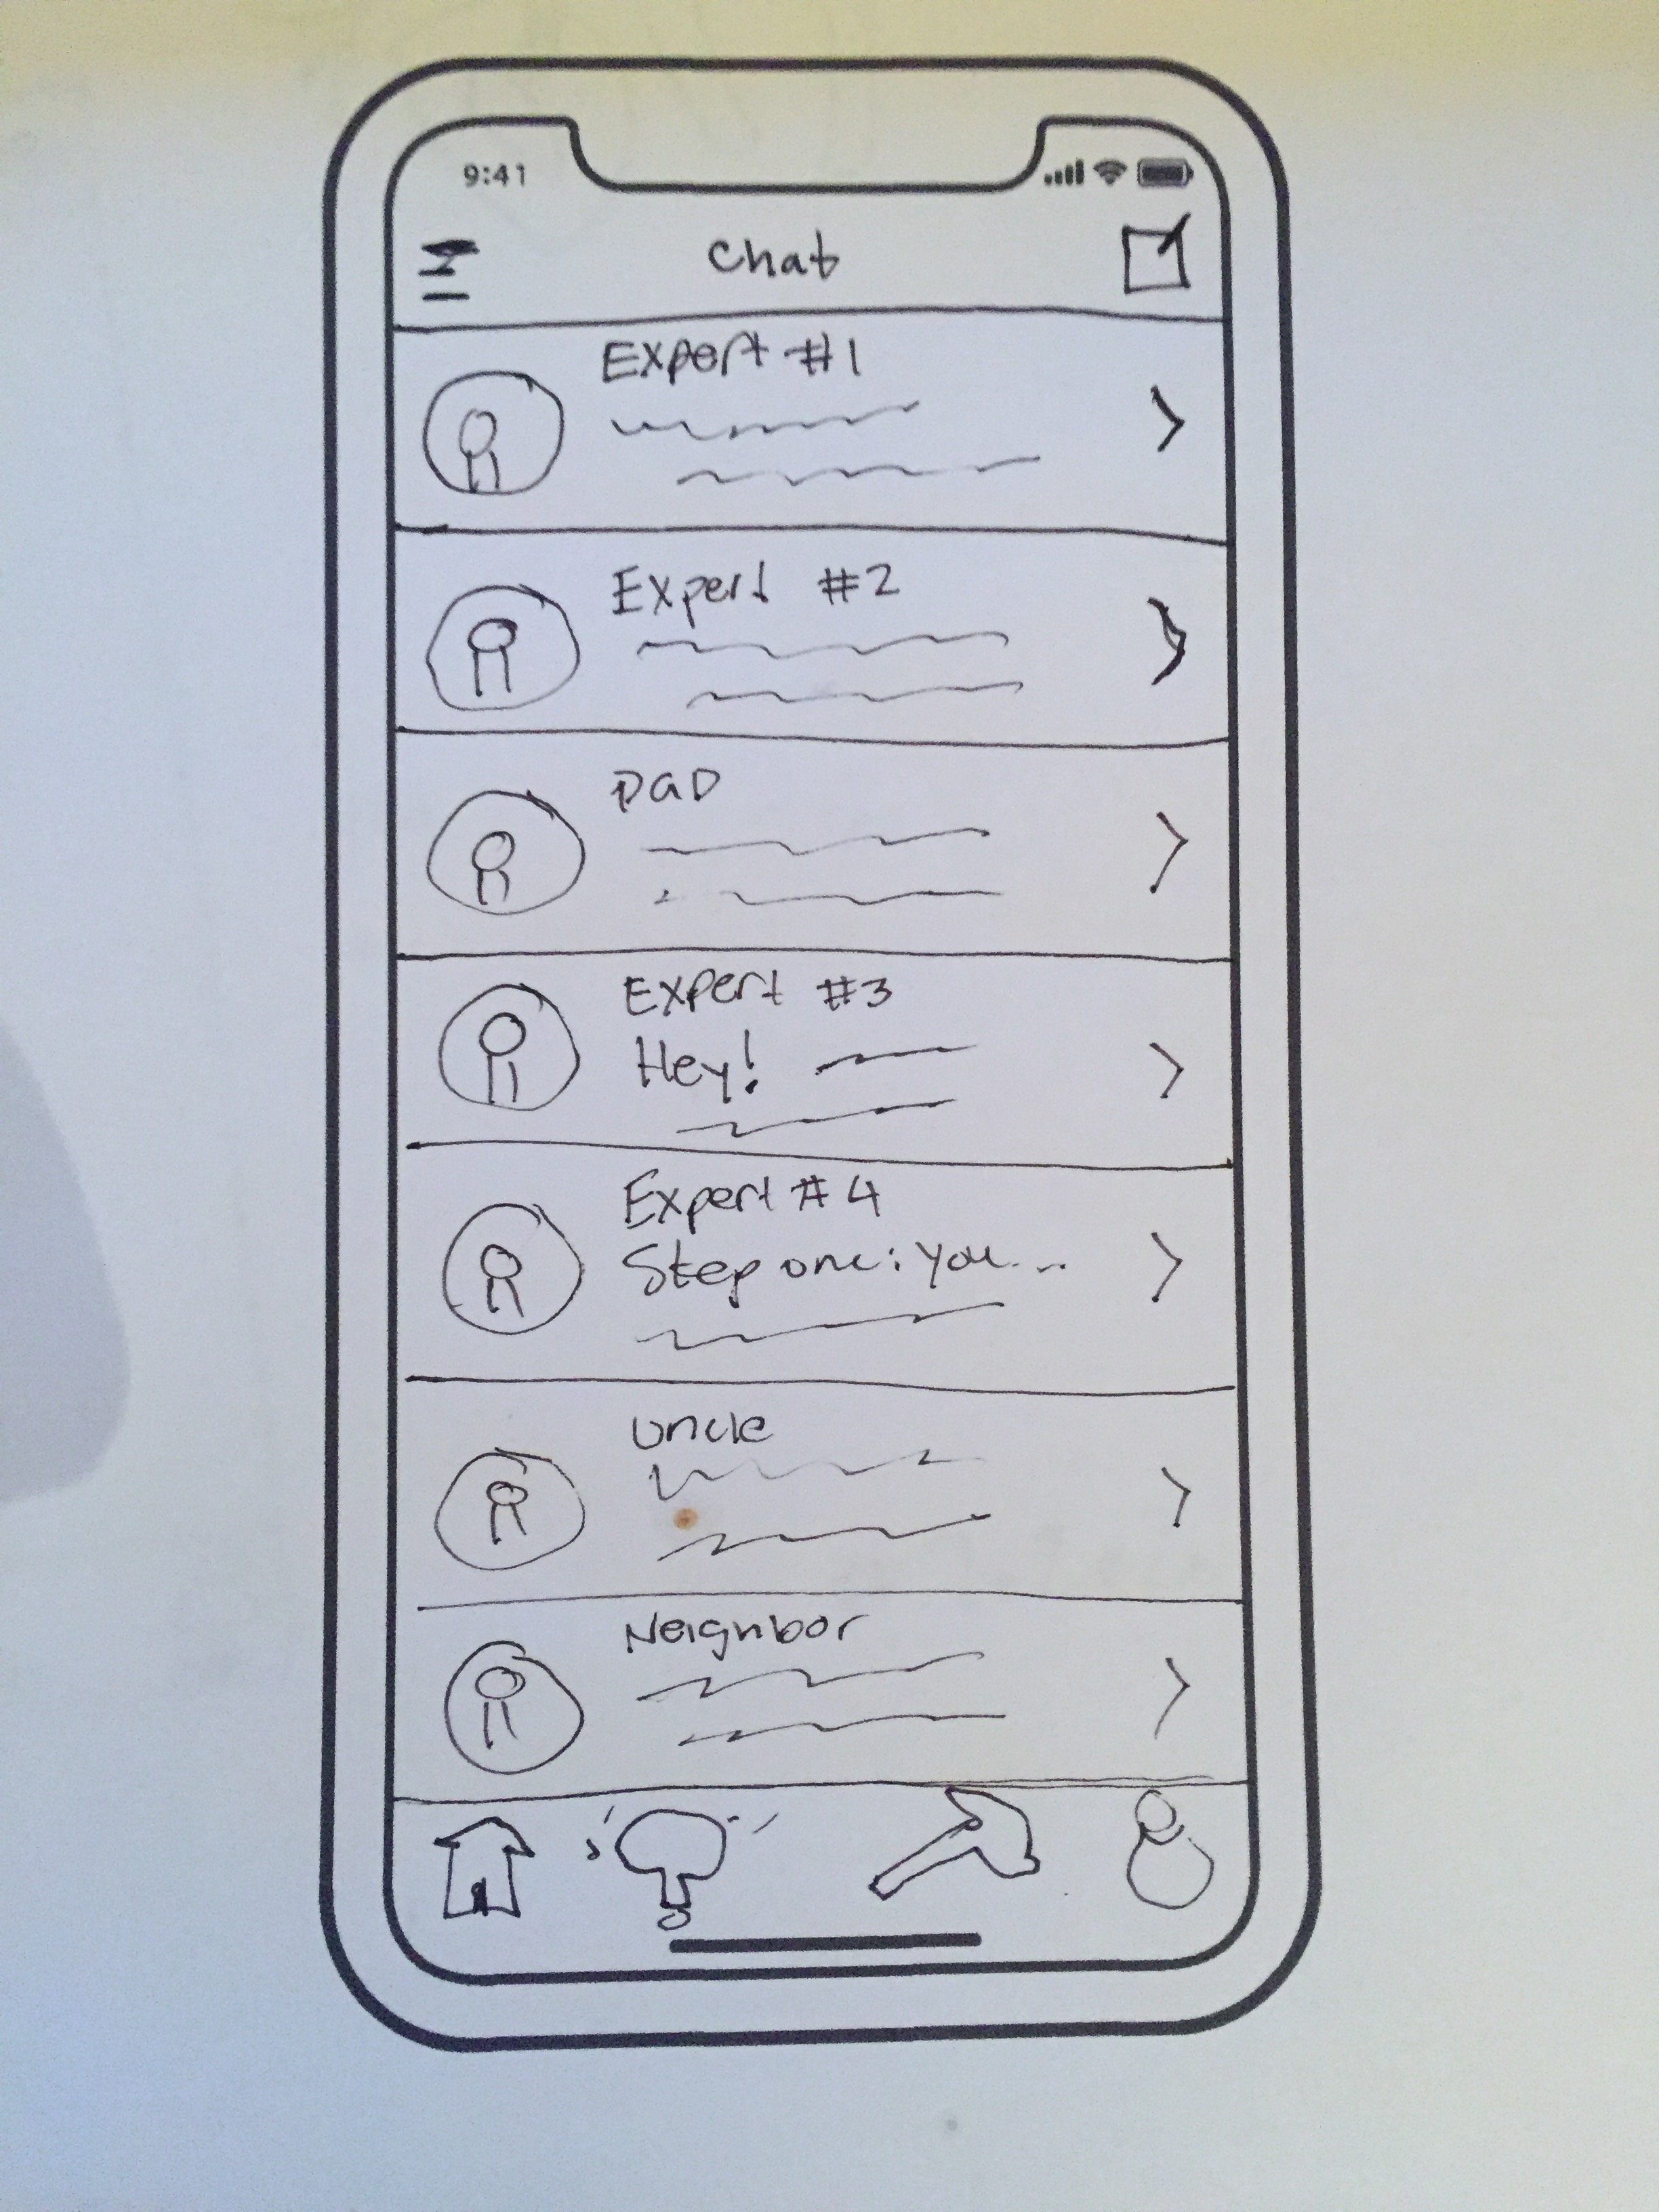 9:41
Chat
Expert #1
Expert #2
DAD
Expert #3
Hey!
Expert #4
Step one: you...
Uncle
Neighbor